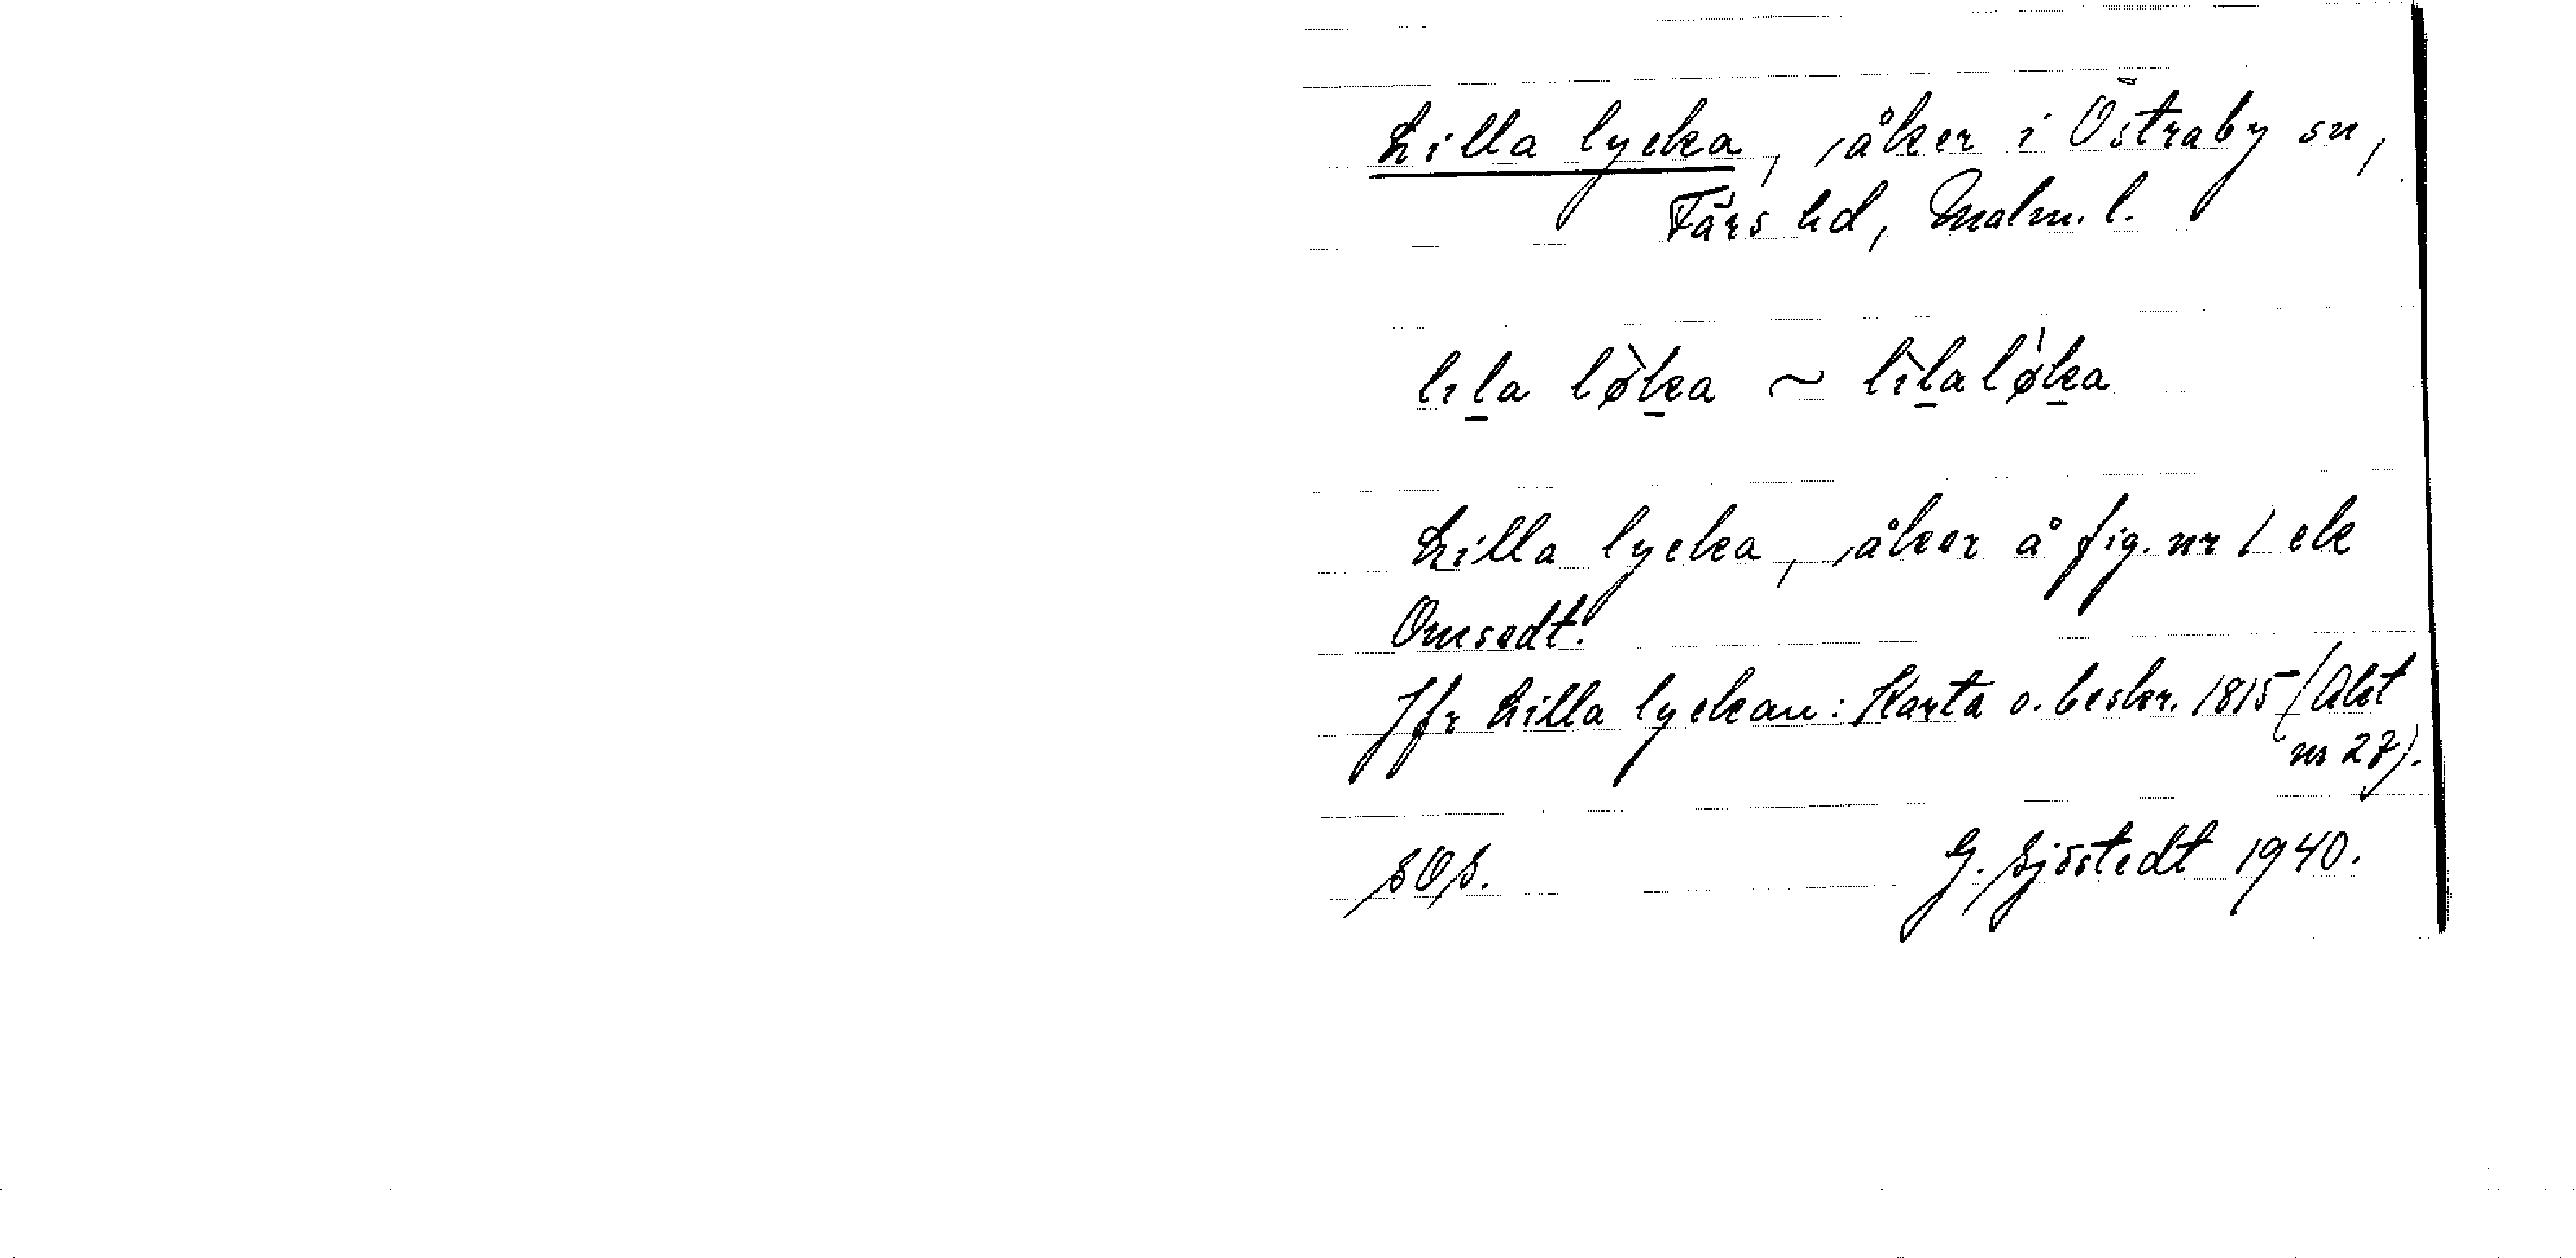 Lilla lycka, åker i Östraby sn,
Färs hd, Malm. l.
lıl̲a lø̀k̲a ~ lı̀l̲alø̍k̲a
Lilla lycka, åker å fig. nr 1 ek
Omsedt.
Jfr Lilla lyckan: Karta o. beskr. 1815 (Akt
nr 27).
SOS. G. Sjöstedt 1940.